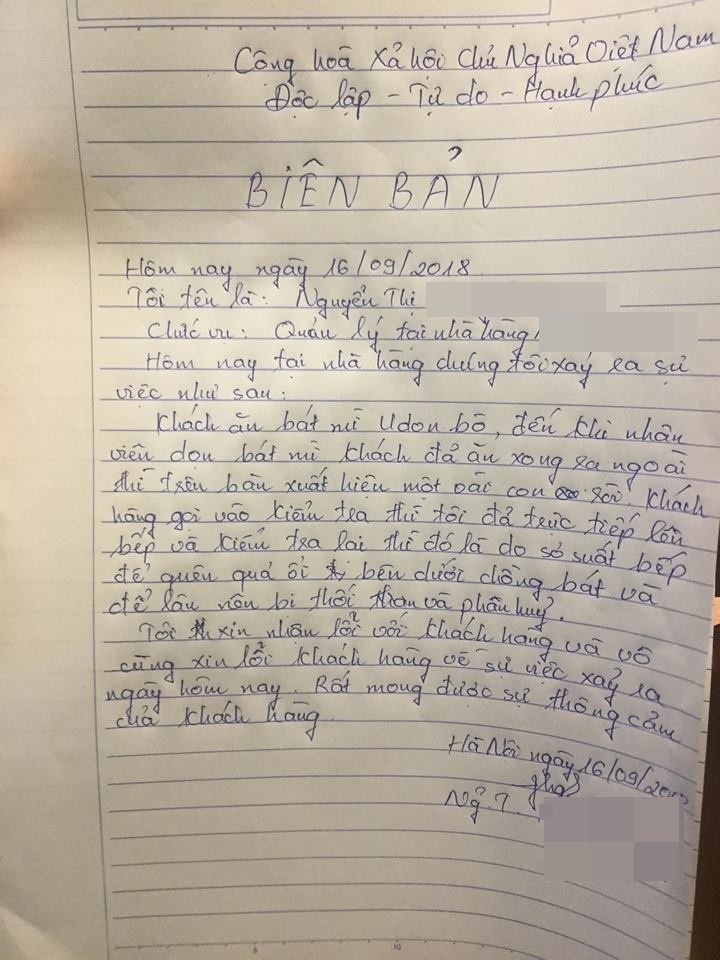 Cộng hoà Xả hội Chủ Nghiã Việt Nam
Độc lập - Tự do - Hạnh phúc
BIÊN BẢN
Hôm nay ngày 16/09/2018
Tôi tên là: Nguyễn Thị
Chức vụ: Quản lý tại nhà hàng
Hôm nay tại nhà hàng chúng tôi xảy ra sự
việc như sau:
Khách ăn bát mì Udon bò, đến khi nhân
viên dọn bát mì khách đả ăn xong ra ngoài
thì trên bàn xuất hiện một vài con ròi. Khách
hàng gọi vào kiểm tra thì tôi đả trực tiếp lên
bếp và kiểm tra lại thì đó là do sơ suất bếp
để quên quả ổi bên dưới chồng bát và
để lâu nên bị thối và phân huỷ.
Tôi xin nhận lỗi với khách hàng và vô
cùng xin lỗi khách hàng về sự việc xảy ra
ngày hôm nay. Rất mong được sự thông cảm
của khách hàng.
Hà Nội ngày 16/09/20
Ng. T.
8 10